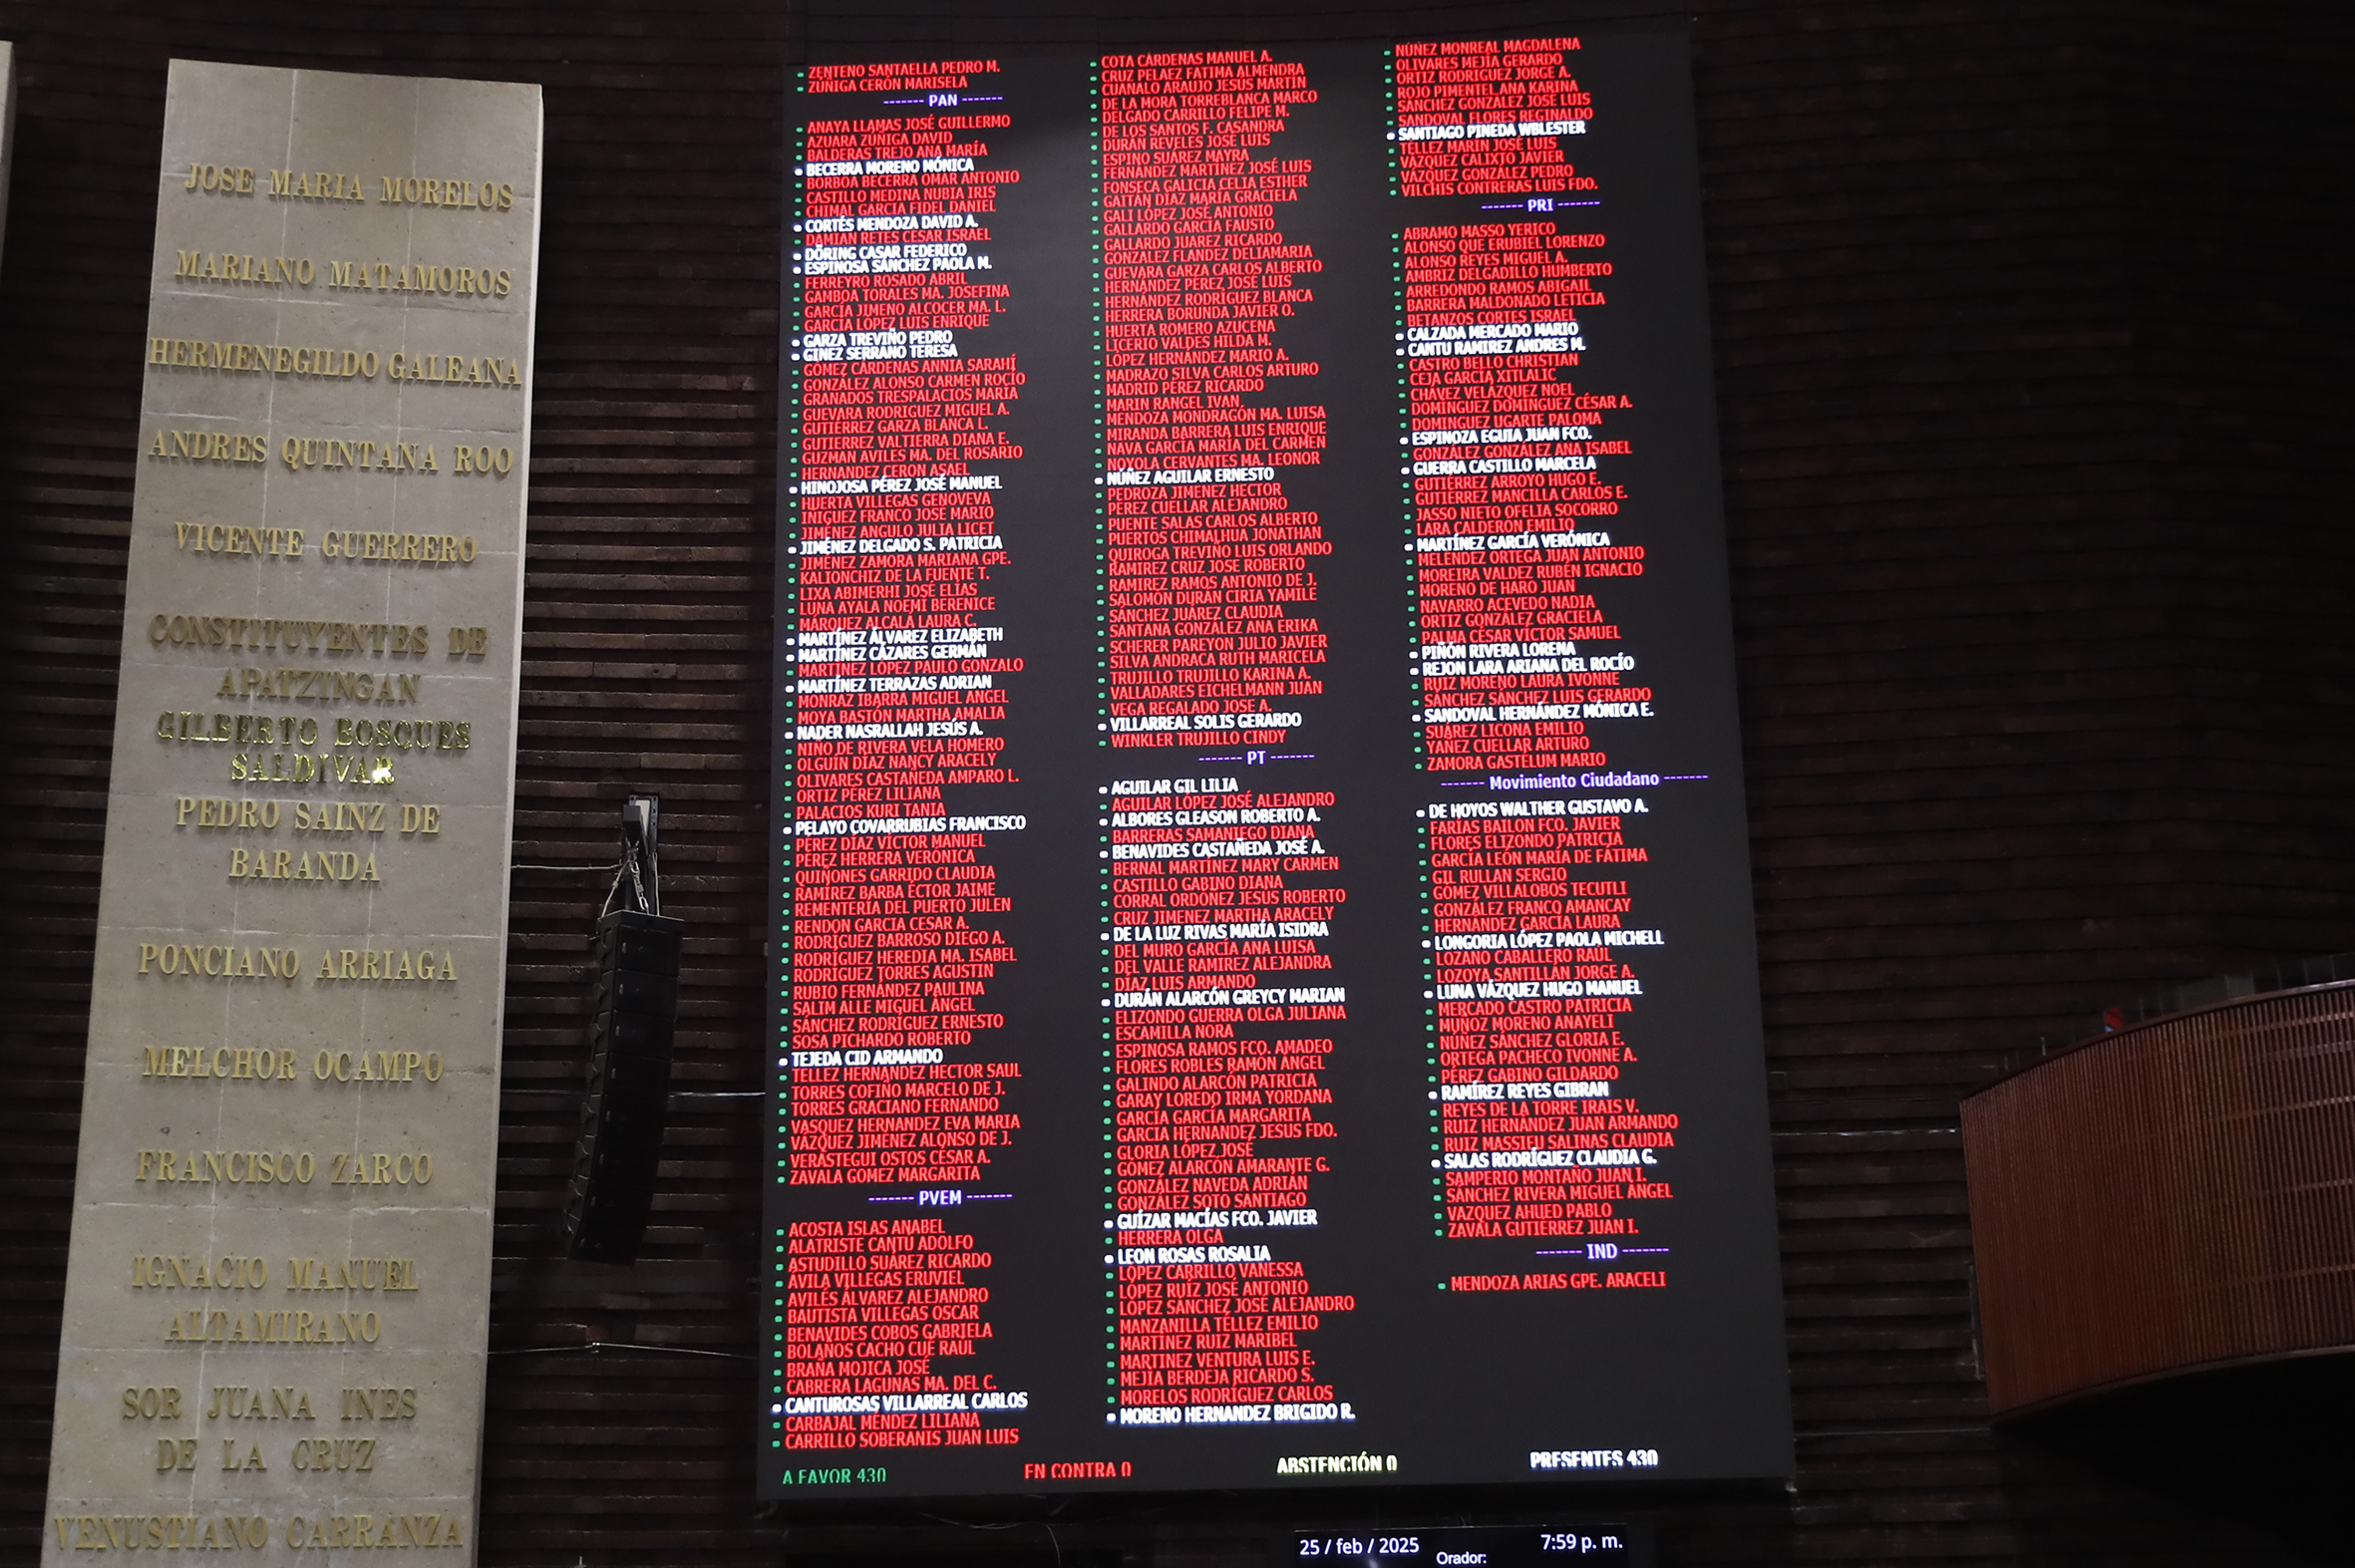 JOSE MARIA MORELOS
MARIANO MATAMOROS
HERMENEGILDO GALEANA
ANDRES QUINTANA ROO
VICENTE GUERRERO
CONSTITUYENTES DE
APATZINGAN
GILBERTO BOSQUES
SALDIVAR
PEDRO SAINZ DE
BARANDA
PONCIANO ARRIAGA
MELCHOR OCAMPO
FRANCISCO ZARCO
IGNACIO MANUEL
ALTAMIRANO
SOR JUANA INES
DE LA CRUZ
VENUSTIANO CARRANZA
ZENTENO SANTAELLA PEDRO M.
ZÚÑIGA CERÓN MARISELA
------- PAN -------
ANAYA LLAMAS JOSÉ GUILLERMO
AZUARA ZÚÑIGA DAVID
BALDERAS TREJO ANA MARÍA
BECERRA MORENO MÓNICA
BORBOA BECERRA OMAR ANTONIO
CASTILLO MEDINA NUBIA IRIS
CHIMAL GARCÍA FIDEL DANIEL
CORTÉS MENDOZA DAVID A.
DAMIAN RETES CESAR ISRAEL
DÖRING CASAR FEDERICO
ESPINOSA SÁNCHEZ PAOLA M.
FERREYRO ROSADO ABRIL
GAMBOA TORALES MA. JOSEFINA
GARCÍA JIMENO ALCOCER MA. L.
GARCÍA LÓPEZ LUIS ENRIQUE
GARZA TREVIÑO PEDRO
GINEZ SERRANO TERESA
GÓMEZ CÁRDENAS ANNIA SARAHÍ
GONZÁLEZ ALONSO CARMEN ROCÍO
GRANADOS TRESPALACIOS MARÍA
GUEVARA RODRIGUEZ MIGUEL A.
GUTIÉRREZ GARZA BLANCA L.
GUTIERREZ VALTIERRA DIANA E.
GUZMAN AVILES MA. DEL ROSARIO
HERNANDEZ CERON ASAEL
HINOJOSA PÉREZ JOSÉ MANUEL
HUERTA VILLEGAS GENOVEVA
IÑIGUEZ FRANCO JOSÉ MARIO
JIMÉNEZ ANGULO JULIA LICET
JIMÉNEZ DELGADO S. PATRICIA
JIMÉNEZ ZAMORA MARIANA GPE.
KALIONCHIZ DE LA FUENTE T.
LIXA ABIMERHI JOSÉ ELÍAS
LUNA AYALA NOEMÍ BERENICE
MÁRQUEZ ALCALÁ LAURA C.
MARTÍNEZ ÁLVAREZ ELIZABETH
MARTÍNEZ CÁZARES GERMÁN
MARTÍNEZ LÓPEZ PAULO GONZALO
MARTÍNEZ TERRAZAS ADRIAN
MONRAZ IBARRA MIGUEL ANGEL
MOYA BASTÓN MARTHA AMALIA
NADER NASRALLAH JESÚS A.
NIÑO DE RIVERA VELA HOMERO
OLGUÍN DÍAZ NANCY ARACELY
OLIVARES CASTAÑEDA AMPARO L.
ORTIZ PÉREZ LILIANA
PALACIOS KURI TANIA
PELAYO COVARRUBIAS FRANCISCO
PÉREZ DÍAZ VÍCTOR MANUEL
PÉREZ HERRERA VERÓNICA
QUIÑONES GARRIDO CLAUDIA
RAMÍREZ BARBA ÉCTOR JAIME
REMENTERÍA DEL PUERTO JULEN
RENDON GARCIA CESAR A.
RODRÍGUEZ BARROSO DIEGO A.
RODRÍGUEZ HEREDIA MA. ISABEL
RODRÍGUEZ TORRES AGUSTÍN
RUBIO FERNÁNDEZ PAULINA
SALIM ALLE MIGUEL ÁNGEL
SÁNCHEZ RODRÍGUEZ ERNESTO
SOSA PICHARDO ROBERTO
TEJEDA CID ARMANDO
TELLEZ HERNÁNDEZ HECTOR SAUL
TORRES COFIÑO MARCELO DE J.
TORRES GRACIANO FERNANDO
VASQUEZ HERNANDEZ EVA MARIA
VÁZQUEZ JIMÉNEZ ALONSO DE J.
VERÁSTEGUI OSTOS CÉSAR A.
ZAVALA GÓMEZ MARGARITA
------- PVEM -------
ACOSTA ISLAS ANABEL
ALATRISTE CANTÚ ADOLFO
ASTUDILLO SUÁREZ RICARDO
ÁVILA VILLEGAS ERUVIEL
AVILÉS ÁLVAREZ ALEJANDRO
BAUTISTA VILLEGAS OSCAR
BENAVIDES COBOS GABRIELA
BOLAÑOS CACHO CUÉ RAÚL
BRAÑA MOJICA JOSÉ
CABRERA LAGUNAS MA. DEL C.
CANTUROSAS VILLARREAL CARLOS
CARBAJAL MÉNDEZ LILIANA
CARRILLO SOBERANIS JUAN LUIS
COTA CÁRDENAS MANUEL A.
CRUZ PELAEZ FATIMA ALMENDRA
CUANALO ARAUJO JESÚS MARTÍN
DE LA MORA TORREBLANCA MARCO
DELGADO CARRILLO FELIPE M.
DE LOS SANTOS F. CASANDRA
DURÁN REVELES JOSÉ LUIS
ESPINO SUÁREZ MAYRA
FERNANDEZ MARTÍNEZ JOSÉ LUIS
FONSECA GALICIA CELIA ESTHER
GAITÁN DÍAZ MARÍA GRACIELA
GALI LÓPEZ JOSÉ ANTONIO
GALLARDO GARCÍA FAUSTO
GALLARDO JUAREZ RICARDO
GONZÁLEZ FLANDEZ DELIAMARIA
GUEVARA GARZA CARLOS ALBERTO
HERNÁNDEZ PÉREZ JOSÉ LUIS
HERNÁNDEZ RODRÍGUEZ BLANCA
HERRERA BORUNDA JAVIER O.
HUERTA ROMERO AZUCENA
LICERIO VALDES HILDA M.
LÓPEZ HERNÁNDEZ MARIO A.
MADRAZO SILVA CARLOS ARTURO
MADRID PÉREZ RICARDO
MARIN RANGEL IVAN
MENDOZA MONDRAGÓN MA. LUISA
MIRANDA BARRERA LUIS ENRIQUE
NAVA GARCÍA MARÍA DEL CARMEN
NOYOLA CERVANTES MA. LEONOR
NÚÑEZ AGUILAR ERNESTO
PEDROZA JIMENEZ HECTOR
PEREZ CUELLAR ALEJANDRO
PUENTE SALAS CARLOS ALBERTO
PUERTOS CHIMALHUA JONATHAN
QUIROGA TREVIÑO LUIS ORLANDO
RAMIREZ CRUZ JOSE ROBERTO
RAMIREZ RAMOS ANTONIO DE J.
SALOMÓN DURÁN CIRIA YAMILE
SÁNCHEZ JUÁREZ CLAUDIA
SANTANA GONZÁLEZ ANA ERIKA
SCHERER PAREYON JULIO JAVIER
SILVA ANDRACA RUTH MARICELA
TRUJILLO TRUJILLO KARINA A.
VALLADARES EICHELMANN JUAN
VEGA REGALADO JOSE A.
VILLARREAL SOLIS GERARDO
WINKLER TRUJILLO CINDY
------- PT -------
AGUILAR GIL LILIA
AGUILAR LÓPEZ JOSÉ ALEJANDRO
ALBORES GLEASON ROBERTO A.
BARRERAS SAMANIEGO DIANA
BENAVIDES CASTAÑEDA JOSÉ A.
BERNAL MARTÍNEZ MARY CARMEN
CASTILLO GABINO DIANA
CORRAL ORDOÑEZ JESÚS ROBERTO
CRUZ JIMENEZ MARTHA ARACELY
DE LA LUZ RIVAS MARÍA ISIDRA
DEL MURO GARCÍA ANA LUISA
DEL VALLE RAMIREZ ALEJANDRA
DÍAZ LUIS ARMANDO
DURÁN ALARCÓN GREYCY MARIAN
ELIZONDO GUERRA OLGA JULIANA
ESCAMILLA NORA
ESPINOSA RAMOS FCO. AMADEO
FLORES ROBLES RAMÓN ÁNGEL
GALINDO ALARCÓN PATRICIA
GARAY LOREDO IRMA YORDANA
GARCÍA GARCÍA MARGARITA
GARCÍA HERNANDEZ JESUS FDO.
GLORIA LÓPEZ JOSÉ
GÓMEZ ALARCÓN AMARANTE G.
GONZÁLEZ NAVEDA ADRIÁN
GONZÁLEZ SOTO SANTIAGO
GUÍZAR MACÍAS FCO. JAVIER
HERRERA OLGA
LEON ROSAS ROSALIA
LÓPEZ CARRILLO VANESSA
LÓPEZ RUÍZ JOSÉ ANTONIO
LÓPEZ SÁNCHEZ JOSÉ ALEJANDRO
MANZANILLA TÉLLEZ EMILIO
MARTÍNEZ RUIZ MARIBEL
MARTINEZ VENTURA LUIS E.
MEJÍA BERDEJA RICARDO S.
MORELOS RODRÍGUEZ CARLOS
MORENO HERNANDEZ BRIGIDO R.
NÚÑEZ MONREAL MAGDALENA
OLIVARES MEJÍA GERARDO
ORTIZ RODRIGUEZ JORGE A.
ROJO PIMENTEL ANA KARINA
SÁNCHEZ GONZÁLEZ JOSÉ LUIS
SANDOVAL FLORES REGINALDO
SANTIAGO PINEDA WBLESTER
TÉLLEZ MARIN JOSÉ LUIS
VÁZQUEZ CALIXTO JAVIER
VÁZQUEZ GONZÁLEZ PEDRO
VILCHIS CONTRERAS LUIS FDO.
------- PRI -------
ABRAMO MASSO YERICO
ALONSO QUE ERUBIEL LORENZO
ALONSO REYES MIGUEL A.
AMBRIZ DELGADILLO HUMBERTO
ARREDONDO RAMOS ABIGAIL
BARRERA MALDONADO LETICIA
BETANZOS CORTES ISRAEL
CALZADA MERCADO MARIO
CANTU RAMIREZ ANDRES M.
CASTRO BELLO CHRISTIAN
CEJA GARCÍA XITLALIC
CHÁVEZ VELÁZQUEZ NOEL
DOMINGUEZ DOMÍNGUEZ CÉSAR A.
DOMINGUEZ UGARTE PALOMA
ESPINOZA EGUIA JUAN FCO.
GONZÁLEZ GONZÁLEZ ANA ISABEL
GUERRA CASTILLO MARCELA
GUTIÉRREZ ARROYO HUGO E.
GUTIÉRREZ MANCILLA CARLOS E.
JASSO NIETO OFELIA SOCORRO
LARA CALDERÓN EMILIO
MARTÍNEZ GARCÍA VERÓNICA
MELÉNDEZ ORTEGA JUÁN ANTONIO
MOREIRA VALDEZ RUBÉN IGNACIO
MORENO DE HARO JUAN
NAVARRO ACEVEDO NADIA
ORTIZ GONZÁLEZ GRACIELA
PALMA CÉSAR VÍCTOR SAMUEL
PIÑÓN RIVERA LORENA
REJON LARA ARIANA DEL ROCÍO
RUIZ MORENO LAURA IVONNE
SÁNCHEZ SÁNCHEZ LUIS GERARDO
SANDOVAL HERNÁNDEZ MÓNICA E.
SUÁREZ LICONA EMILIO
YÁÑEZ CUELLAR ARTURO
ZAMORA GASTELUM MARIO
------- Movimiento Ciudadano -------
DE HOYOS WALTHER GUSTAVO A.
FARIAS BAILON FCO. JAVIER
FLORES ELIZONDO PATRICIA
GARCÍA LEÓN MARÍA DE FÁTIMA
GIL RULLAN SERGIO
GÓMEZ VILLALOBOS TECUTLI
GONZÁLEZ FRANCO AMANCAY
HERNÁNDEZ GARCÍA LAURA
LONGORIA LÓPEZ PAOLA MICHELL
LOZANO CABALLERO RAÚL
LOZOYA SANTILLÁN JORGE A.
LUNA VÁZQUEZ HUGO MANUEL
MERCADO CASTRO PATRICIA
MUÑOZ MORENO ANAYELI
NÚÑEZ SÁNCHEZ GLORIA E.
ORTEGA PACHECO IVONNE A.
PÉREZ GABINO GILDARDO
RAMÍREZ REYES GIBRAN
REYES DE LA TORRE IRAIS V.
RUIZ HERNÁNDEZ JUAN ARMANDO
RUIZ MASSIEU SALINAS CLAUDIA
SALAS RODRÍGUEZ CLAUDIA G.
SAMPERIO MONTAÑO JUAN I.
SÁNCHEZ RIVERA MIGUEL ÁNGEL
VAZQUEZ AHUED PABLO
ZAVALA GUTIÉRREZ JUAN I.
------- IND -------
MENDOZA ARIAS GPE. ARACELI
A FAVOR 430
EN CONTRA 0
ABSTENCIÓN 0
PRESENTES 430
25 / feb / 2025
7:59 p. m.
Orador: